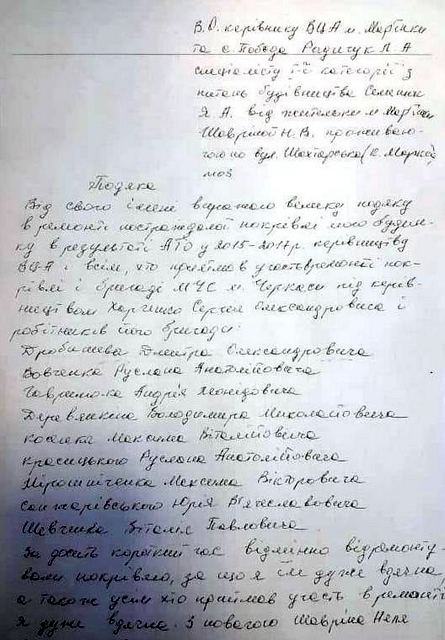 В.О. керівнику ВЦА м. Мар'їнки
та с. Победа Радичук Л. А
спеціалісту ІІ категорії з
питань будівництва Семанюк
Я. А. від жительки м Мар'їнки
Шавріної Н. В. проживаю-
чої по вул. Шахтарська
Подяка
Від свого імені виражаю велику подяку
в ремонті постраждалої покрівлі мого будин-
ку в результаті АТО у 2015-2017р. керівництву
ВЦА і всім, хто приймав участь в ремонті пок-
рівлі і бригаді МЧС м. Черкаси під керів-
ництвом Сергія Олександровича і
робітників його бригади:
Дробишева Дмитра Олександровича
Вовченка Руслана Анатолійовича
Гавриленка Андрія Леонідовича
Деревянкіна Володимира Миколайовича
Максима Віталійовіча
Красицького Руслана Анатолійовича
Мірошніченка Максима Вікторовича
Санжарівського Юрія Вячеславовича
Шевченка Віталія Павловича
За досить короткий час відмінно відремонту-
вали покрівлю, за що я їм дуже вдячна,
а також усім хто приймав участь в ремонті
я дуже вдячна. З повагою Шавріна Неля